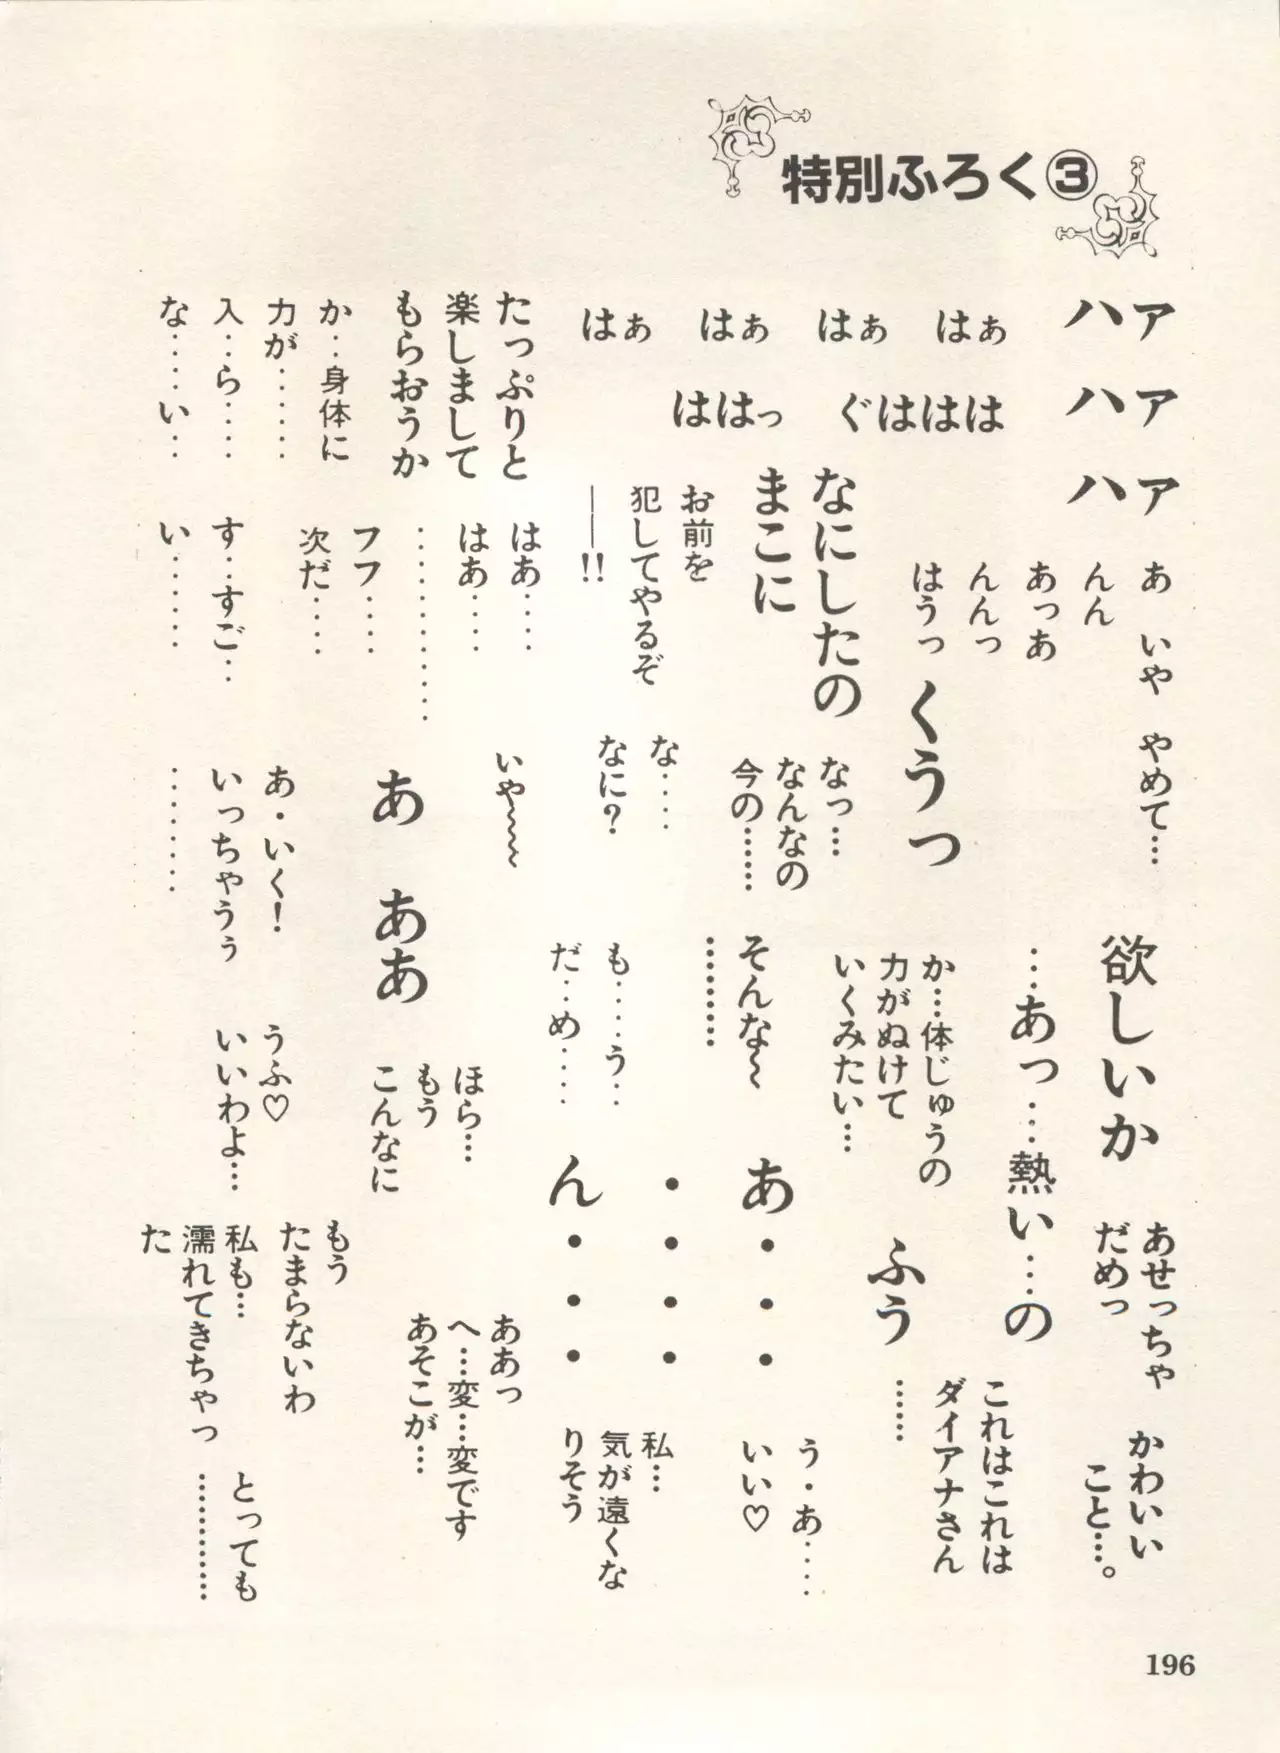 特別ふろく③
ァ ァ ァ
ハ ハ ハ
はぁ
はぁ
はぁ
はぁ
ぐははは
ははっ
たっぷりと
楽しまして
もらおうか
か‥身体に
力が‥‥‥
入‥ら‥‥
な‥‥い‥
あ いや やめて…
んん
あっあ
んんっ
はうっ
くうっ
なにしたの
まこに
お前を
犯してやるぞ
――!!
はあ‥‥
はあ‥‥
‥‥‥‥‥‥
フフ‥‥
次だ‥‥
す‥すご‥
い‥‥‥
なっ…
なんなの
今の……
な‥‥
なに?
いや〜〜
あ ああ
あ・いく!
いっちゃうぅ
‥‥‥‥
欲しいか
…あっ‥‥熱い‥‥の
か…体じゅうの
力がぬけて
いくみたい…
そんな〜
………
も‥‥う‥
だ‥め‥‥
ほら…
もう
こんなに
うふ♡
いいわよ…
あせっちゃ
だめっ
かわいい
こと…。
ふう
これはこれは
ダイアナさん
……
あ・・・
・・・・
ん・・・
う・あ‥‥
いい♡
私…
気が遠くな
りそう
ああっ
へ…変…変です
あそこが…
もう
たまらないわ
私も…
濡れてきちゃっ
た
とっても
…………
196